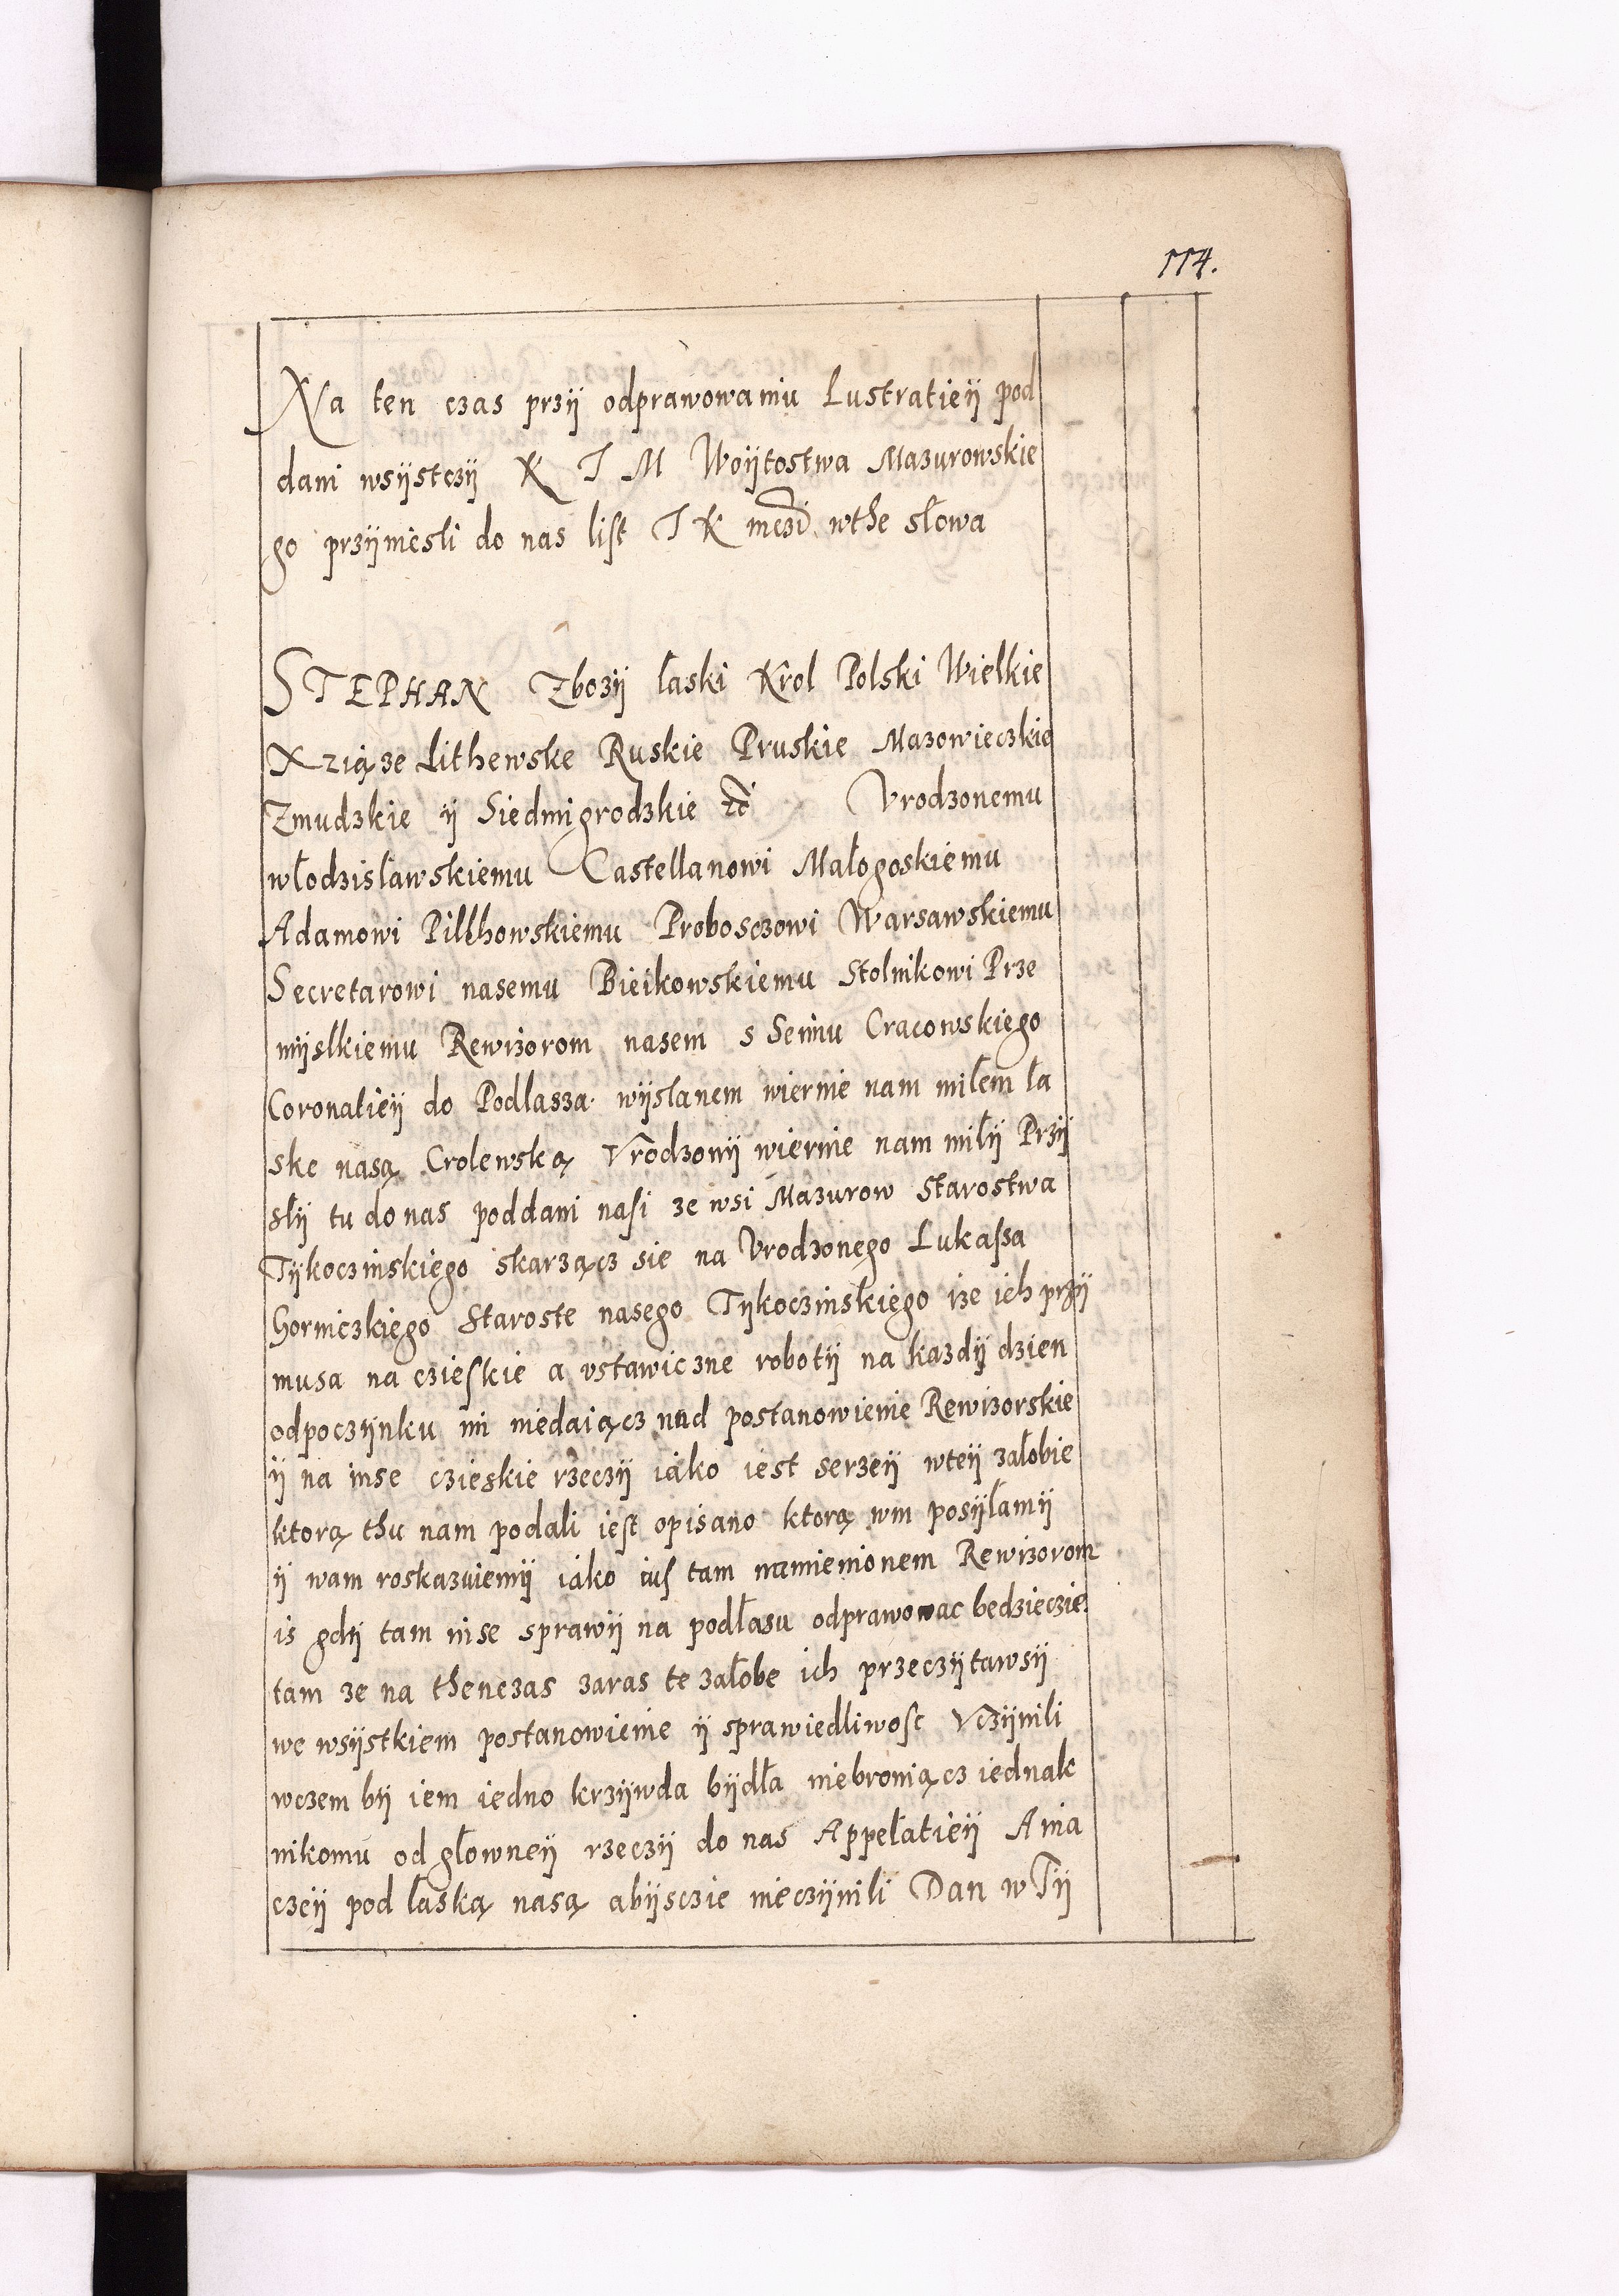 114.
Na ten czas przÿ odprawowaniu Lustratieÿ pod
dani wsÿstczÿ K J M Woÿtostwa Mazurowskie
go przÿniesli do nas list J K mczi wthe słowa
STEPHAN Zbozÿ łaski Krol Polski Wielkie
Xziąze Lithewske Ruskie Pruskie Mazowieczkie
Zmudzkie ÿ Siedmigrodzkie etc Vrodzonemu
włodzisławskiemu Castellanowi Małogoskiemu
Adamowi Pilchowskiemu Probosczowi Warsawskiemu
Secretarowi nasemu Bieikowskiemu Stolnikowi Prze
mÿslkiemu Rewizorom nasem s Seimu Cracowskiego
Coronatieÿ do Podlasza wÿsłanem wiernie nam miłem ła
ske nasą Crolewską Vrodzonÿ wiernie nam miłÿ Przÿ
słÿ tu do nas poddani nasi ze wsi Mazurow Starostwa
Tÿkoczinskiego skarząncz sie na Vrodzonego Lukassa
Gorniczkiego Staroste nasego Tÿkoczinskiego ize ich przÿ
musa na czieskie a vstawiczne robotÿ na kazdÿ dzien
odpoczÿnku im niedaiącz nad postanowienie Rewizorskie
ÿ na inse czieskie rzeczÿ iako iest serzeÿ wteÿ załobie
ktorą thu nam podali iest opisano ktorą wm posÿłamÿ
ÿ wam roskazuiemÿ iako ius tam namienionem Rewizorom
is gdÿ tam inse sprawÿ na podłasu odprawowac bedziecziе
tam ze na thenczas zaras te załobe ich przeczÿtawsÿ
we wsÿstkiem postanowienie ÿ sprawiedliwosc Vczÿnili
wczem bÿ iem iedno krzÿwda bÿdła niebroniącz iednak
nikomu od głowneÿ rzeczÿ do nas Appełatieÿ Ania
czeÿ pod łaską nasą abÿsczie nieczÿnili Dan w Tÿ